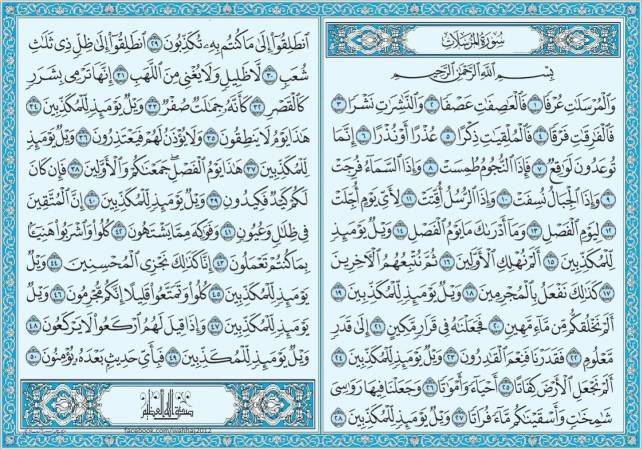 سُورَةُ المُرْسَلَاتِ
بِسْمِ اللَّهِ الرَّحْمَٰنِ الرَّحِيمِ
وَالْمُرْسَلَاتِ عُرْفًا ١ فَالْعَاصِفَاتِ عَصْفًا ٢ وَالنَّاشِرَاتِ نَشْرًا ٣
فَالْفَارِقَاتِ فَرْقًا ٤ فَالْمُلْقِيَاتِ ذِكْرًا ٥ عُذْرًا أَوْ نُذْرًا ٦ إِنَّمَا
تُوعَدُونَ لَوَاقِعٌ ٧ فَإِذَا النُّجُومُ طُمِسَتْ ٨ وَإِذَا السَّمَاءُ فُرِجَتْ
٩ وَإِذَا الْجِبَالُ نُسِفَتْ ١٠ وَإِذَا الرُّسُلُ أُقِّتَتْ ١١ لِأَيِّ يَوْمٍ أُجِّلَتْ
١٢ لِيَوْمِ الْفَصْلِ ١٣ وَمَا أَدْرَاكَ مَا يَوْمُ الْفَصْلِ ١٤ وَيْلٌ يَوْمَئِذٍ
لِّلْمُكَذِّبِينَ ١٥ أَلَمْ نُهْلِكِ الْأَوَّلِينَ ١٦ ثُمَّ نُتْبِعُهُمُ الْآخِرِينَ
١٧ كَذَٰلِكَ نَفْعَلُ بِالْمُجْرِمِينَ ١٨ وَيْلٌ يَوْمَئِذٍ لِّلْمُكَذِّبِينَ ١٩
أَلَمْ نَخْلُقكُّم مِّن مَّاءٍ مَّهِينٍ ٢٠ فَجَعَلْنَاهُ فِي قَرَارٍ مَّكِينٍ ٢١ إِلَىٰ قَدَرٍ
مَّعْلُومٍ ٢٢ فَقَدَرْنَا فَنِعْمَ الْقَادِرُونَ ٢٣ وَيْلٌ يَوْمَئِذٍ لِّلْمُكَذِّبِينَ ٢٤
أَلَمْ نَجْعَلِ الْأَرْضَ كِفَاتًا ٢٥ أَحْيَاءً وَأَمْوَاتًا ٢٦ وَجَعَلْنَا فِيهَا رَوَاسِيَ
شَامِخَاتٍ وَأَسْقَيْنَاكُم مَّاءً فُرَاتًا ٢٧ وَيْلٌ يَوْمَئِذٍ لِّلْمُكَذِّبِينَ ٢٨
انطَلِقُوا إِلَىٰ مَا كُنتُم بِهِ تُكَذِّبُونَ ٢٩ انطَلِقُوا إِلَىٰ ظِلٍّ ذِي ثَلَاثِ
شُعَبٍ ٣٠ لَّا ظَلِيلٍ وَلَا يُغْنِي مِنَ اللَّهَبِ ٣١ إِنَّهَا تَرْمِي بِشَرَرٍ
كَالْقَصْرِ ٣٢ كَأَنَّهُ جِمَالَتٌ صُفْرٌ ٣٣ وَيْلٌ يَوْمَئِذٍ لِّلْمُكَذِّبِينَ ٣٤
هَٰذَا يَوْمُ لَا يَنطِقُونَ ٣٥ وَلَا يُؤْذَنُ لَهُمْ فَيَعْتَذِرُونَ ٣٦ وَيْلٌ يَوْمَئِذٍ
لِّلْمُكَذِّبِينَ ٣٧ هَٰذَا يَوْمُ الْفَصْلِ جَمَعْنَاكُمْ وَالْأَوَّلِينَ ٣٨ فَإِن كَانَ
لَكُمْ كَيْدٌ فَكِيدُونِ ٣٩ وَيْلٌ يَوْمَئِذٍ لِّلْمُكَذِّبِينَ ٤٠ إِنَّ الْمُتَّقِينَ
فِي ظِلَالٍ وَعُيُونٍ ٤١ وَفَوَاكِهَ مِمَّا يَشْتَهُونَ ٤٢ كُلُوا وَاشْرَبُوا هَنِيئًا
بِمَا كُنتُمْ تَعْمَلُونَ ٤٣ إِنَّا كَذَٰلِكَ نَجْزِي الْمُحْسِنِينَ ٤٤ وَيْلٌ
يَوْمَئِذٍ لِّلْمُكَذِّبِينَ ٤٥ كُلُوا وَتَمَتَّعُوا قَلِيلًا إِنَّكُم مُّجْرِمُونَ ٤٦ وَيْلٌ
يَوْمَئِذٍ لِّلْمُكَذِّبِينَ ٤٧ وَإِذَا قِيلَ لَهُمُ ارْكَعُوا لَا يَرْكَعُونَ ٤٨
وَيْلٌ يَوْمَئِذٍ لِّلْمُكَذِّبِينَ ٤٩ فَبِأَيِّ حَدِيثٍ بَعْدَهُ يُؤْمِنُونَ ٥٠
صدق الله العظيم
facebook.com/wahhaj2012